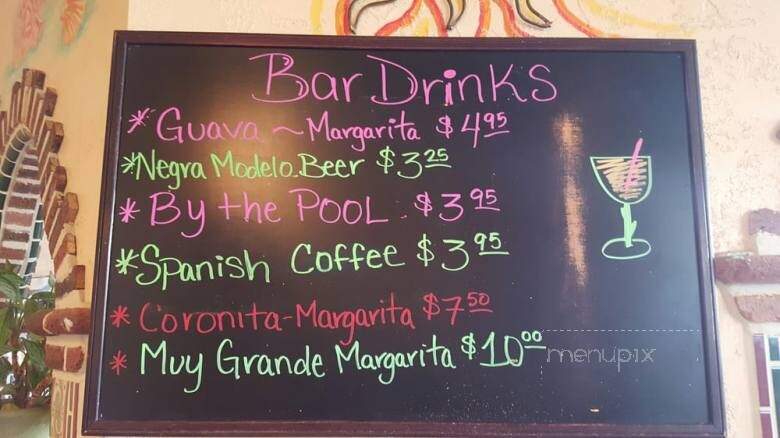 Bar Drinks
* Guava ~ Margarita $4.95
* Negra Modelo. Beer $3.25
* By the POOL. $3.95
* Spanish Coffee $3.95
* Coronita-Margarita $7.50
* Muy Grande Margarita $10.00
menupix